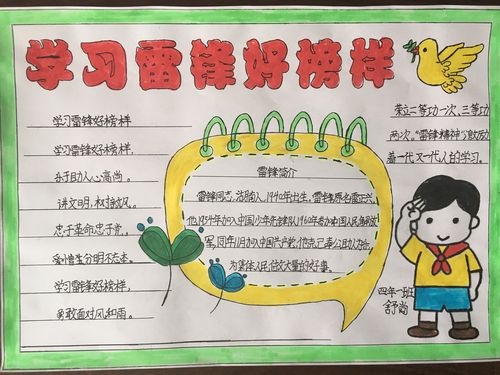 学习雷锋好榜样
学习雷锋好榜样
学习雷锋好榜样，
助人心高尚。
讲文明，树
忠于革命忠于党，
爱憎分明不忘本。
学习雷锋好榜样，
勇敢面对风和雨。
雷锋简介
雷锋同志，湖南人，1940年出生，雷锋原名雷正兴，
他1954年加入中国少年先锋队，1960年参加中国人民解放
军，同年11月加入中国共产党，
为集体人民做大量的好事。
荣立二等功一次、三等功
两次。"雷锋精神"鼓励
着一代又一代人的学习。
四年一班
舒尚